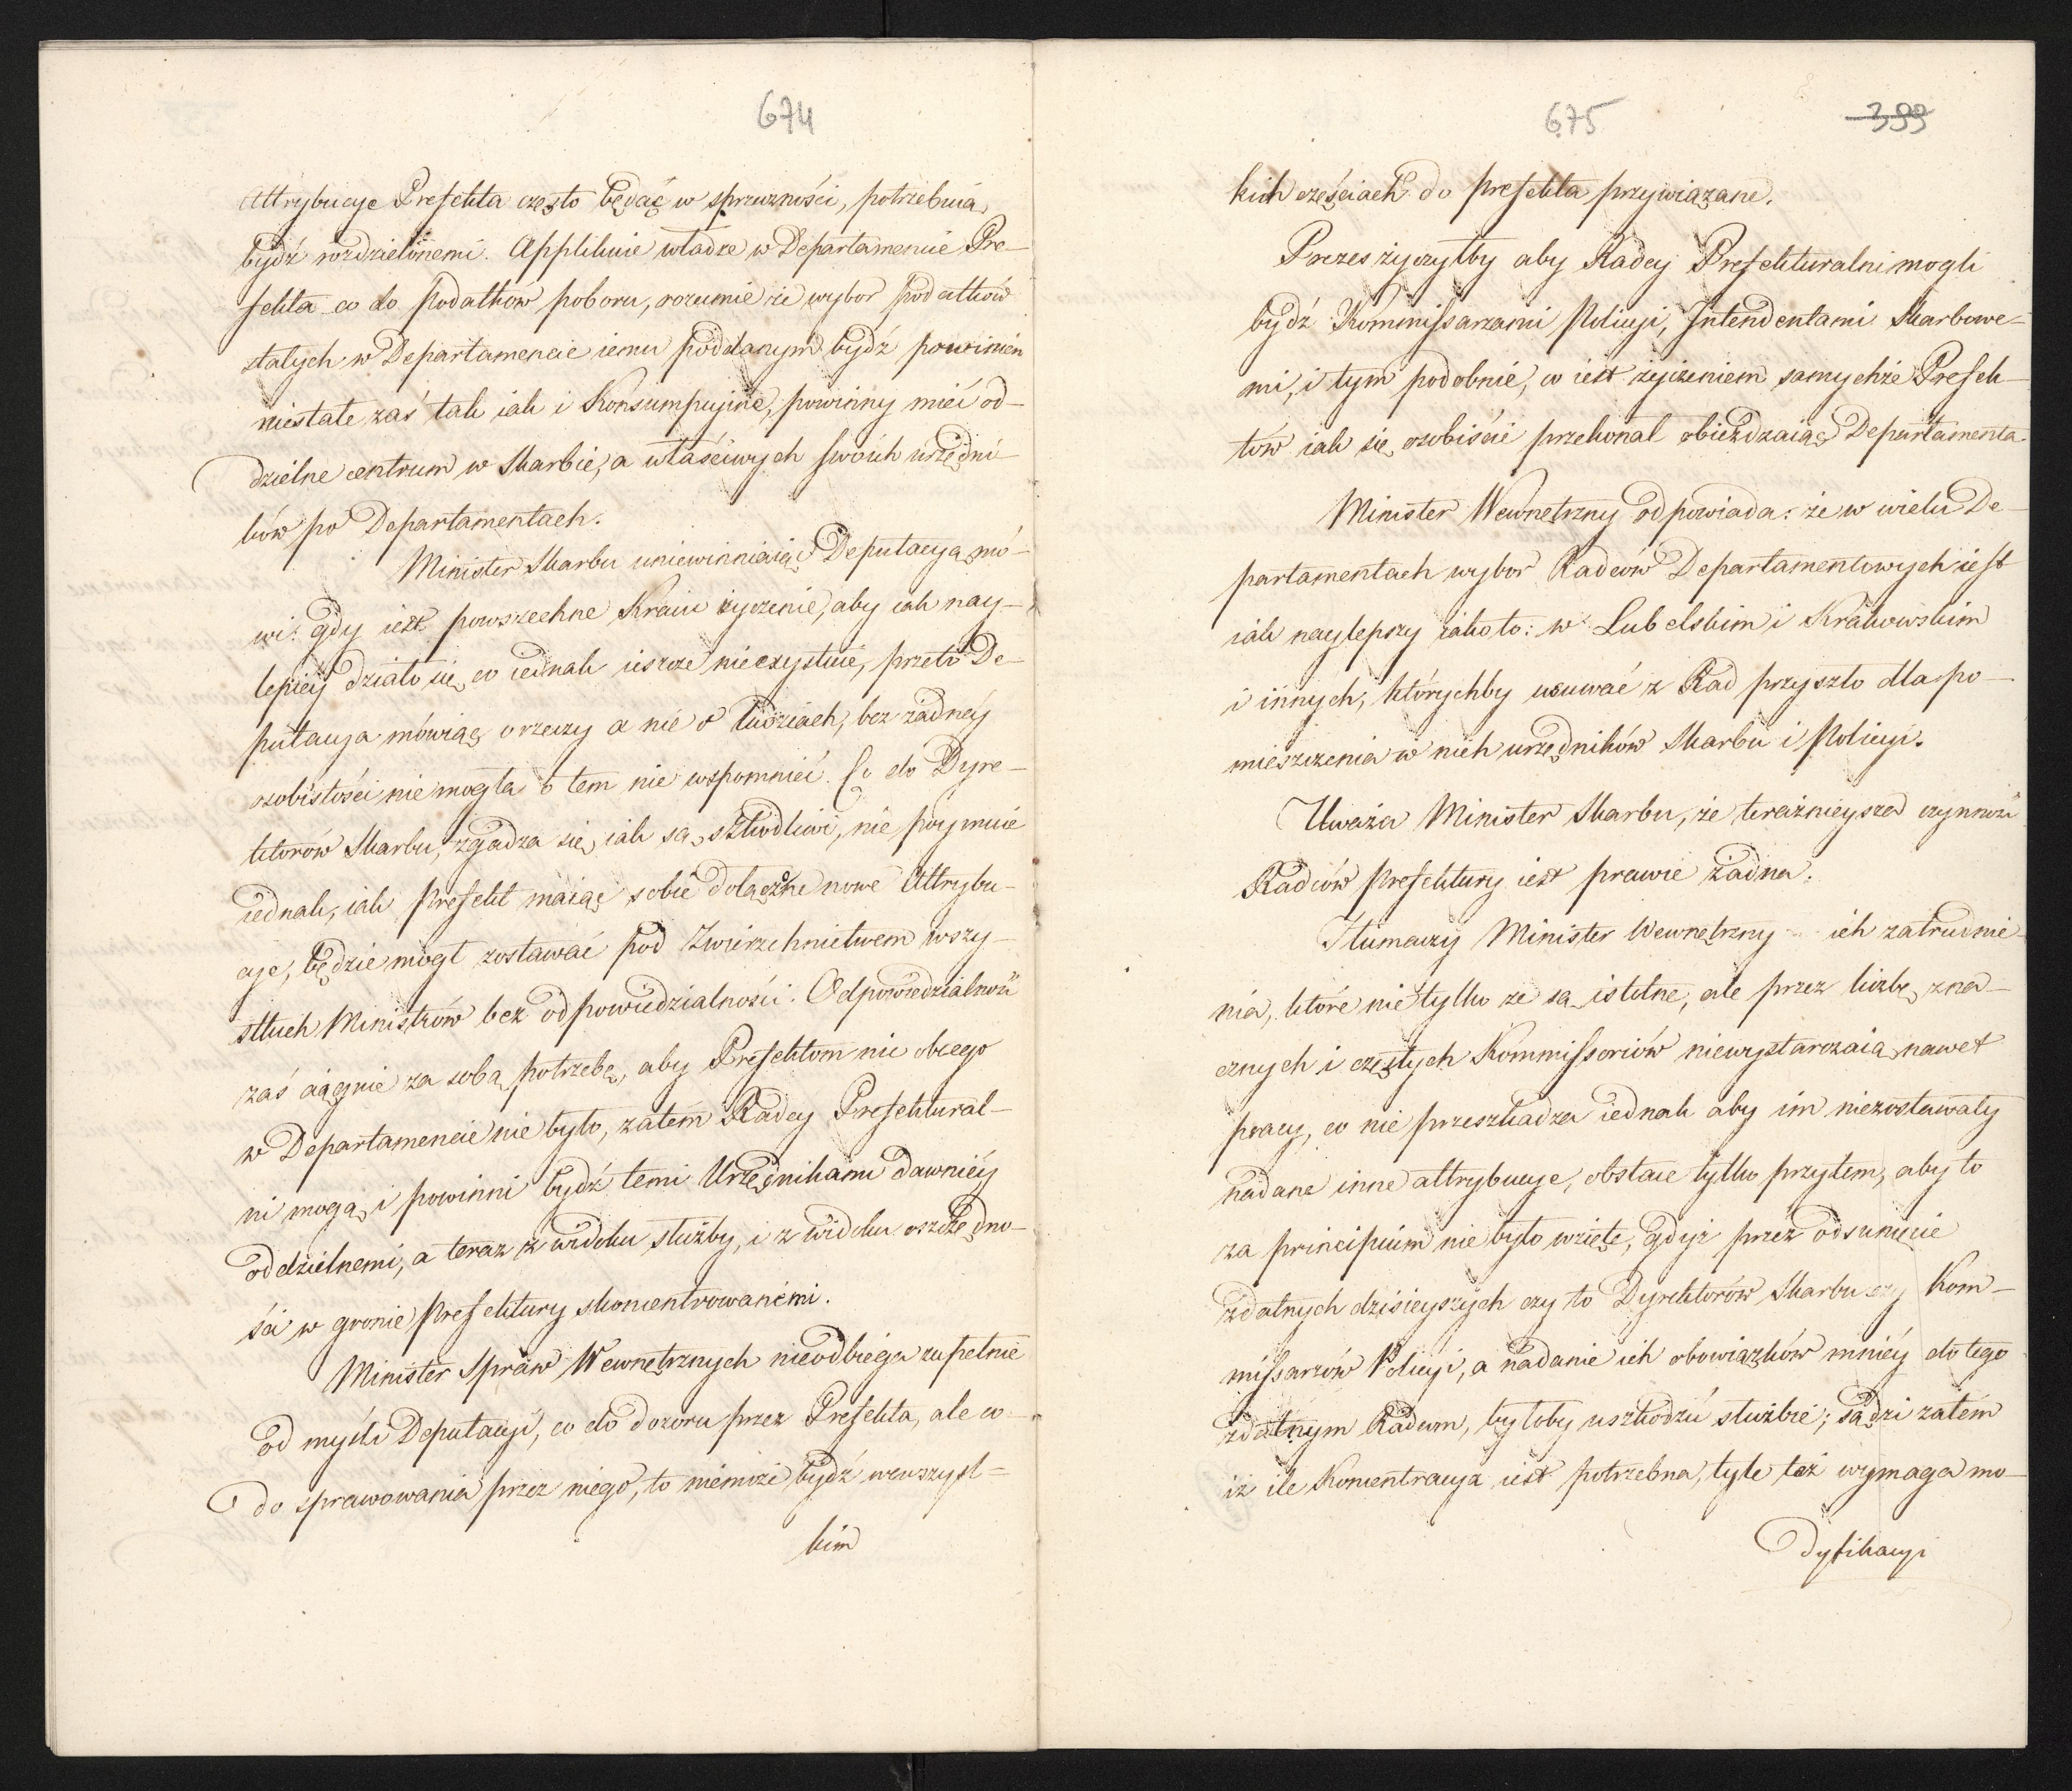 674
Attrybucye Prefekta często będąc w sprzeczności, potrzebuią
bydź rozdzielonemi. Applikuie władze w Departamencie Pre-
fekta co do Podatków poboru, rozumie że wybor Podatków
stałych w Departamencie iemu poddanym bydź powinien
niestałe zaś tak iak i Konsumpcyjne, powinny mieć od-
dzielne centrum w Skarbie, a właściwych swoich urzędni-
ków po Departamentach.
Minister Skarbu uniewinniaiąc Deputacyą mó-
wi: gdy iest powszechne Kraiu życzenie, aby iak nay-
lepiey działo się, co iednak ieszcze nieexystuie, przeto De-
putacya mówiąc o rzeczy a nie o ludziach, bez żadney
osobistości nie mogła o tem nie wspomnieć. Co do Dyre-
ktorów Skarbu, zgadza się, iak są szkodliwi, nie poymuie
iednak, iak Prefekt maiąc sobie dołączone nowe Attrybu-
cye, będzie mógł zostawać pod Zwierzchnictwem wszy-
stkich Ministrów bez odpowiedzialności. Odpowiedzialność
zaś ciągnie za sobą potrzebę, aby Prefektom nic obcego
w Departamencie nie było, zatem Radcy Prefektural-
ni mogą i powinni bydź temi Urzędnikami dawniey
oddzielnemi, a teraz z widoku służby, i z widoku oszczędno-
ści w gronie Prefektury skoncentrowanemi.
Minister Spraw Wewnętrznych nieodbiega zupełnie
od myśli Deputacyi, co do dozoru przez Prefekta, ale co
do sprawowania przez niego, to niemoże bydź wewszyst-
kim
675 399
kich częściach do prefekta przywiązane.
Prezes życzyłby aby Radcy Prefekturalni mogli
bydź Kommissarzami Policyi, Intendentami Skarbowe-
mi, i tym podobnie, co iest życzeniem samychże Prefek-
tów iak się osobiście przekonał obieżdzaiąc Departamenta.
Minister Wewnętrzny odpowiada: że w wielu De-
partamentach wybor Radców Departamentowych iest
iak naylepszy iako to: w Lubelskim i Krakowskim
i innych, którychby usuwać z Rad przyszło dla po-
mieszczenia w nich urzędników Skarbu i Policyi.
Uważa Minister Skarbu, że teraźnieysza czynność
Radców Prefektury iest prawie żadna.
Tłumaczy Minister Wewnętrzny ich zatrudnie-
nia, które nie tylko że są istotne, ale przez liczbę zna-
cznych i częstych Kommissoriów niewystarczaią nawet
pracy, co nie przeszkadza iednak aby im niezostawały
nadane inne attrybucye, obstaie tylko przytem, aby to
za principium nie było wzięte, gdyż przez odsunięcie
zdatnych dzisieyszych czy to Dyrektorów Skarbu czy Kom-
missarzów Policyi, a nadanie ich obowiązków mniey do tego
zdatnym Radcom, byłoby uszkodzić służbie; sądzi zatém
iż ile Koncentracya iest potrzebna, tyle też wymaga mo-
dyfikacyi